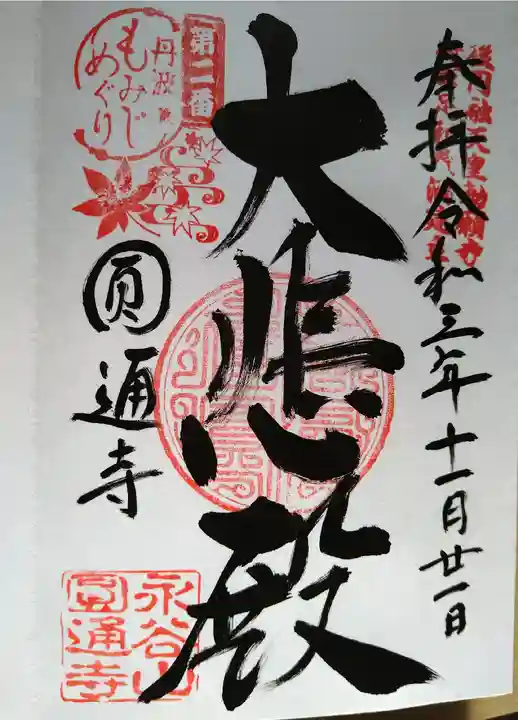 奉拝令和三年十一月廿一日
大悲殿
第二番
丹波
もみじ
めぐり
圓通寺
永谷山
圓通寺